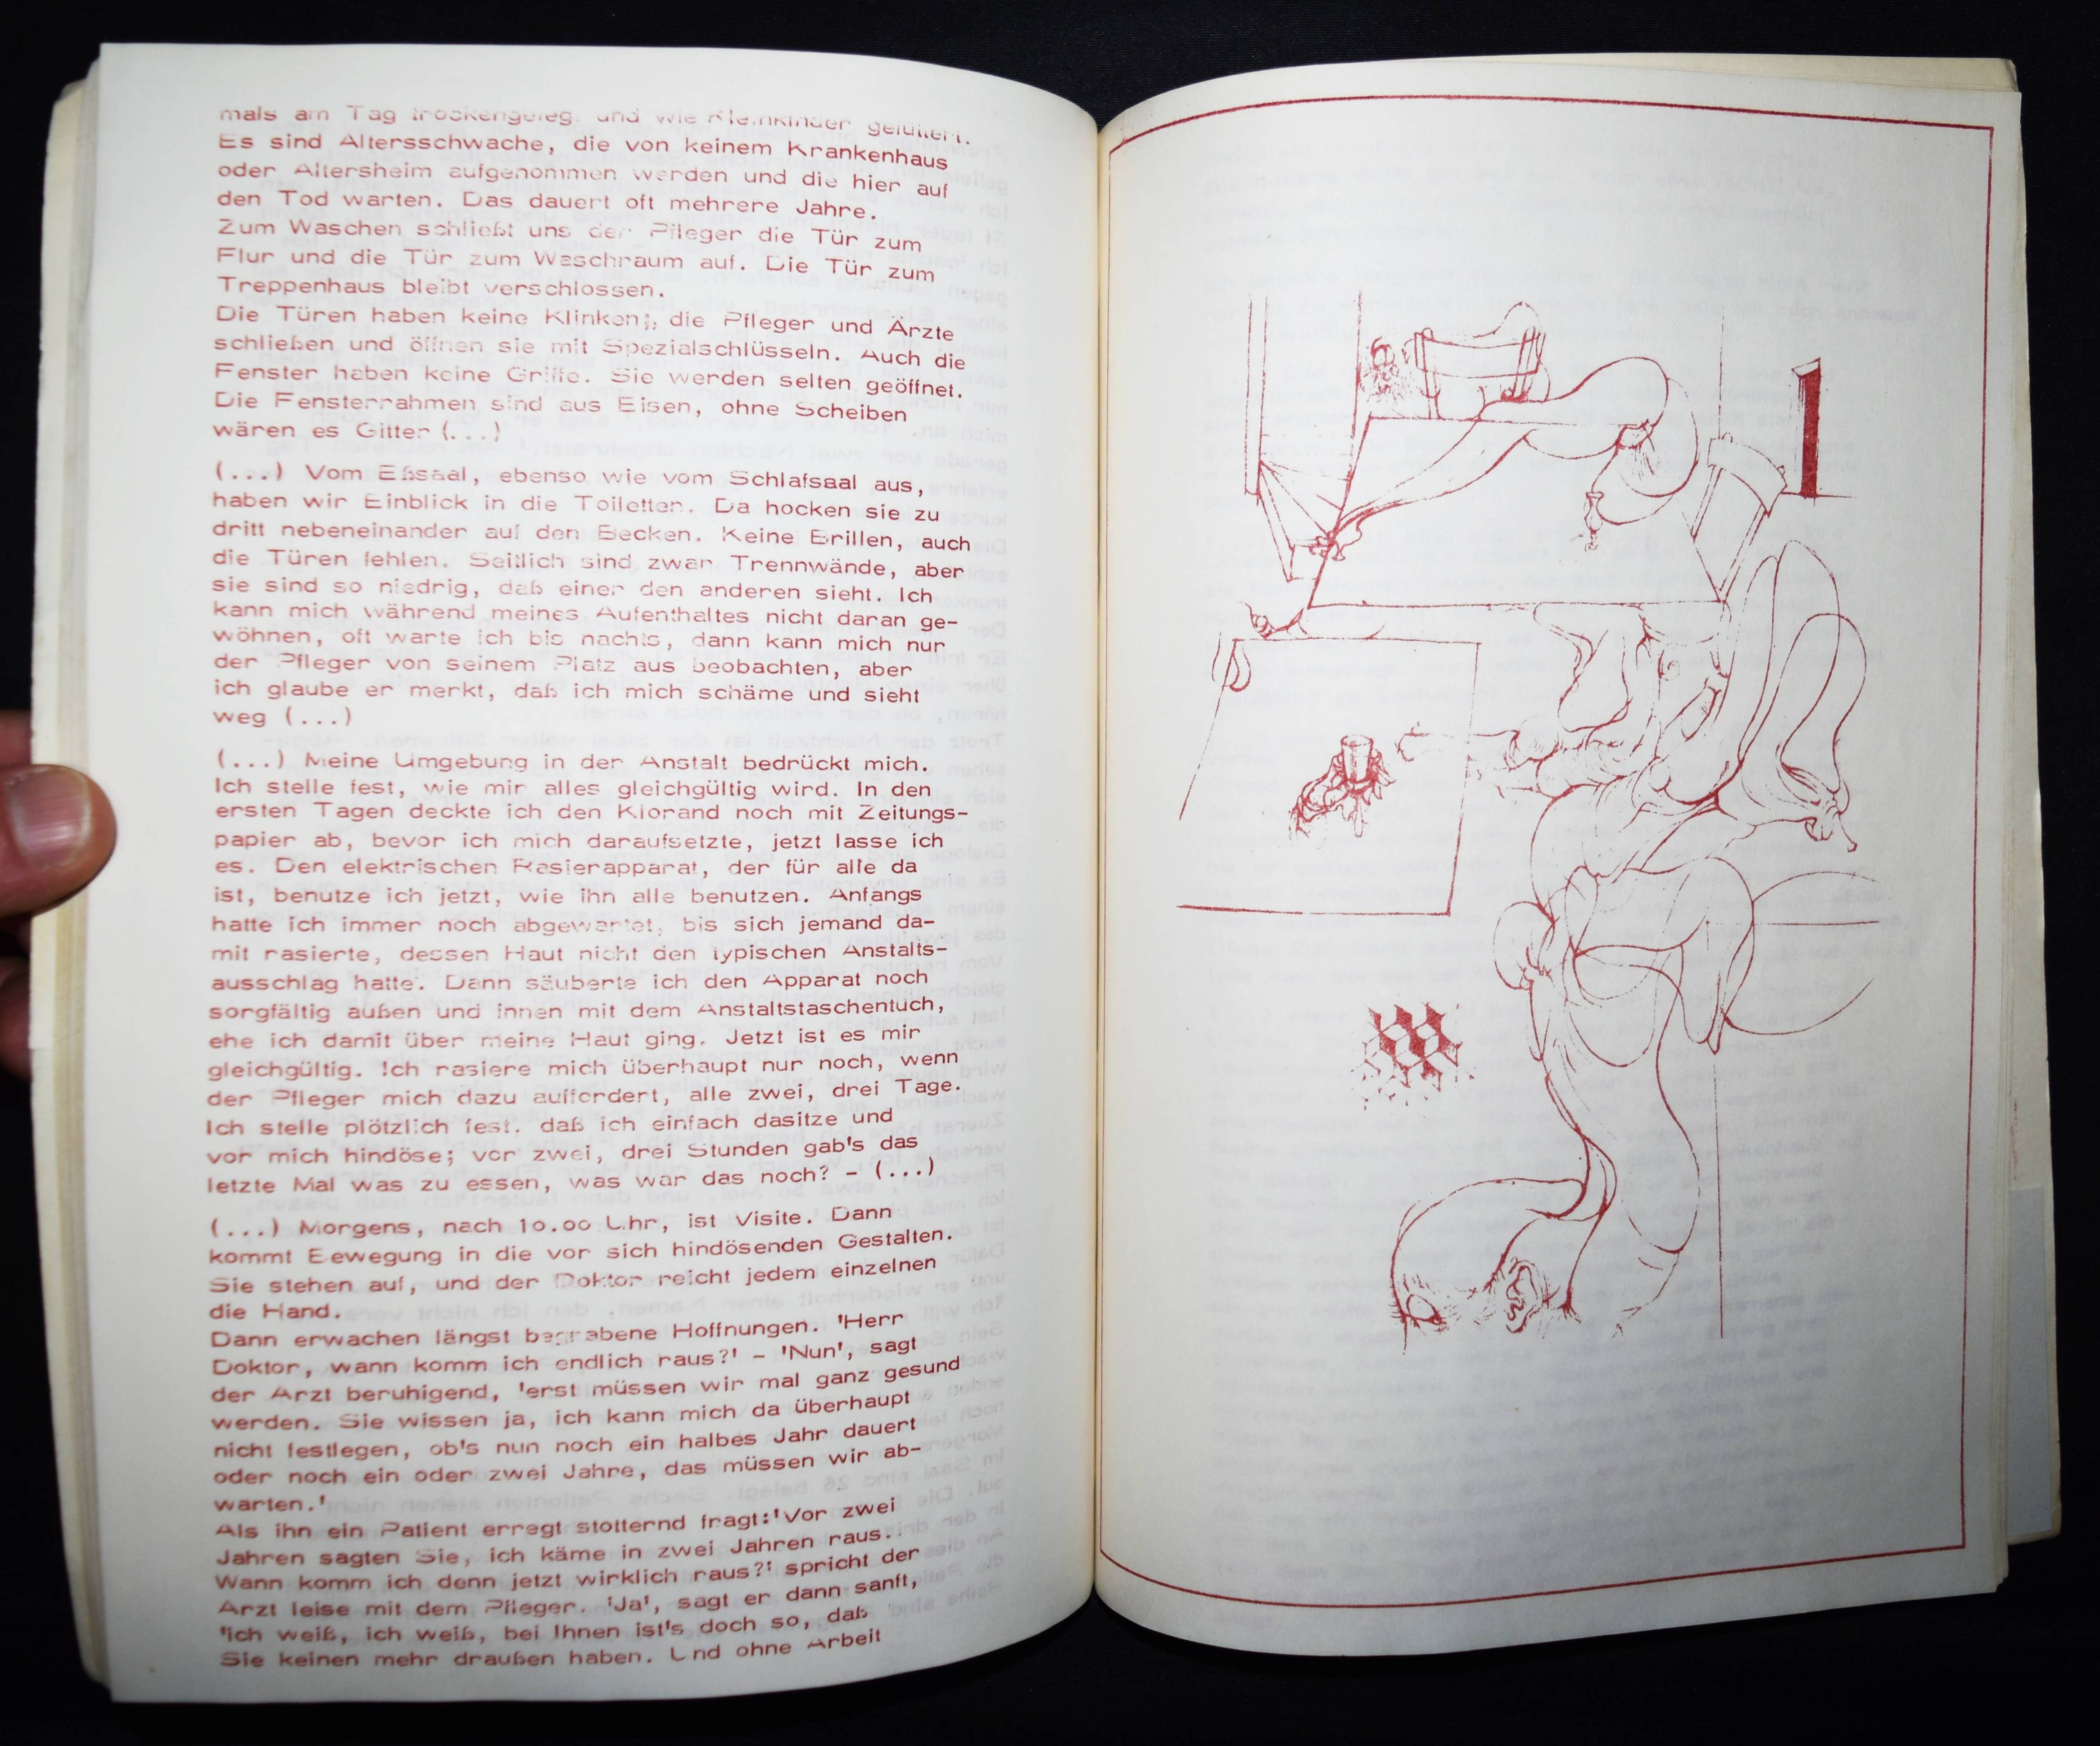 mals am Tag trockengeleg und wie Kleinkinder gefüttert.
Es sind Altersschwache, die von keinem Krankenhaus
oder Altersheim aufgenommen werden und die hier auf
den Tod warten. Das dauert oft mehrere Jahre.
Zum Waschen schließt uns der Pfleger die Tür zum
Flur und die Tür zum Waschraum auf. Die Tür zum
Treppenhaus bleibt verschlossen.
Die Türen haben keine Klinken;, die Pfleger und Ärzte
schließen und öffnen sie mit Spezialschlüsseln. Auch die
Fenster haben keine Griffe. Sie werden selten geöffnet.
Die Fensterrahmen sind aus Eisen, ohne Scheiben
wären es Gitter (...)
(...) Vom Eßsaal, ebenso wie vom Schlafsaal aus,
haben wir Einblick in die Toiletten. Da hocken sie zu
dritt nebeneinander auf den Becken. Keine Brillen, auch
die Türen fehlen. Seitlich sind zwar Trennwände, aber
sie sind so niedrig, daß einer den anderen sieht. Ich
kann mich während meines Aufenthaltes nicht daran ge-
wöhnen, oft warte ich bis nachts, dann kann mich nur
der Pfleger von seinem Platz aus beobachten, aber
ich glaube er merkt, daß ich mich schäme und sieht
weg (...)
(...) Meine Umgebung in der Anstalt bedrückt mich.
Ich stelle fest, wie mir alles gleichgültig wird. In den
ersten Tagen deckte ich den Klorand noch mit Zeitungs-
papier ab, bevor ich mich daraufsetzte, jetzt lasse ich
es. Den elektrischen Rasierapparat, der für alle da
ist, benutze ich jetzt, wie ihn alle benutzen. Anfangs
hatte ich immer noch abgewartet, bis sich jemand da-
mit rasierte, dessen Haut nicht den typischen Anstalts-
ausschlag hatte. Dann säuberte ich den Apparat noch
sorgfältig außen und innen mit dem Anstaltstaschentuch,
ehe ich damit über meine Haut ging. Jetzt ist es mir
gleichgültig. Ich rasiere mich überhaupt nur noch, wenn
der Pfleger mich dazu auffordert, alle zwei, drei Tage.
Ich stelle plötzlich fest, daß ich einfach dasitze und
vor mich hindöse; vor zwei, drei Stunden gab's das
letzte Mal was zu essen, was war das noch? - (...)
(...) Morgens, nach 10.00 Uhr, ist Visite. Dann
kommt Bewegung in die vor sich hindösenden Gestalten.
Sie stehen auf, und der Doktor reicht jedem einzelnen
die Hand.
Dann erwachen längst begrabene Hoffnungen. 'Herr
Doktor, wann komm ich endlich raus?' - 'Nun', sagt
der Arzt beruhigend, 'erst müssen wir mal ganz gesund
werden. Sie wissen ja, ich kann mich da überhaupt
nicht festlegen, ob's nun noch ein halbes Jahr dauert
oder noch ein oder zwei Jahre, das müssen wir ab-
warten.'
Als ihn ein Patient erregt stotternd fragt:'Vor zwei
Jahren sagten Sie, ich käme in zwei Jahren raus..
Wann komm ich denn jetzt wirklich raus?' spricht der
Arzt leise mit dem Pfleger. 'Ja', sagt er dann sanft,
'ich weiß, ich weiß, bei Ihnen ist's doch so, daß
Sie keinen mehr draußen haben. Und ohne Arbeit